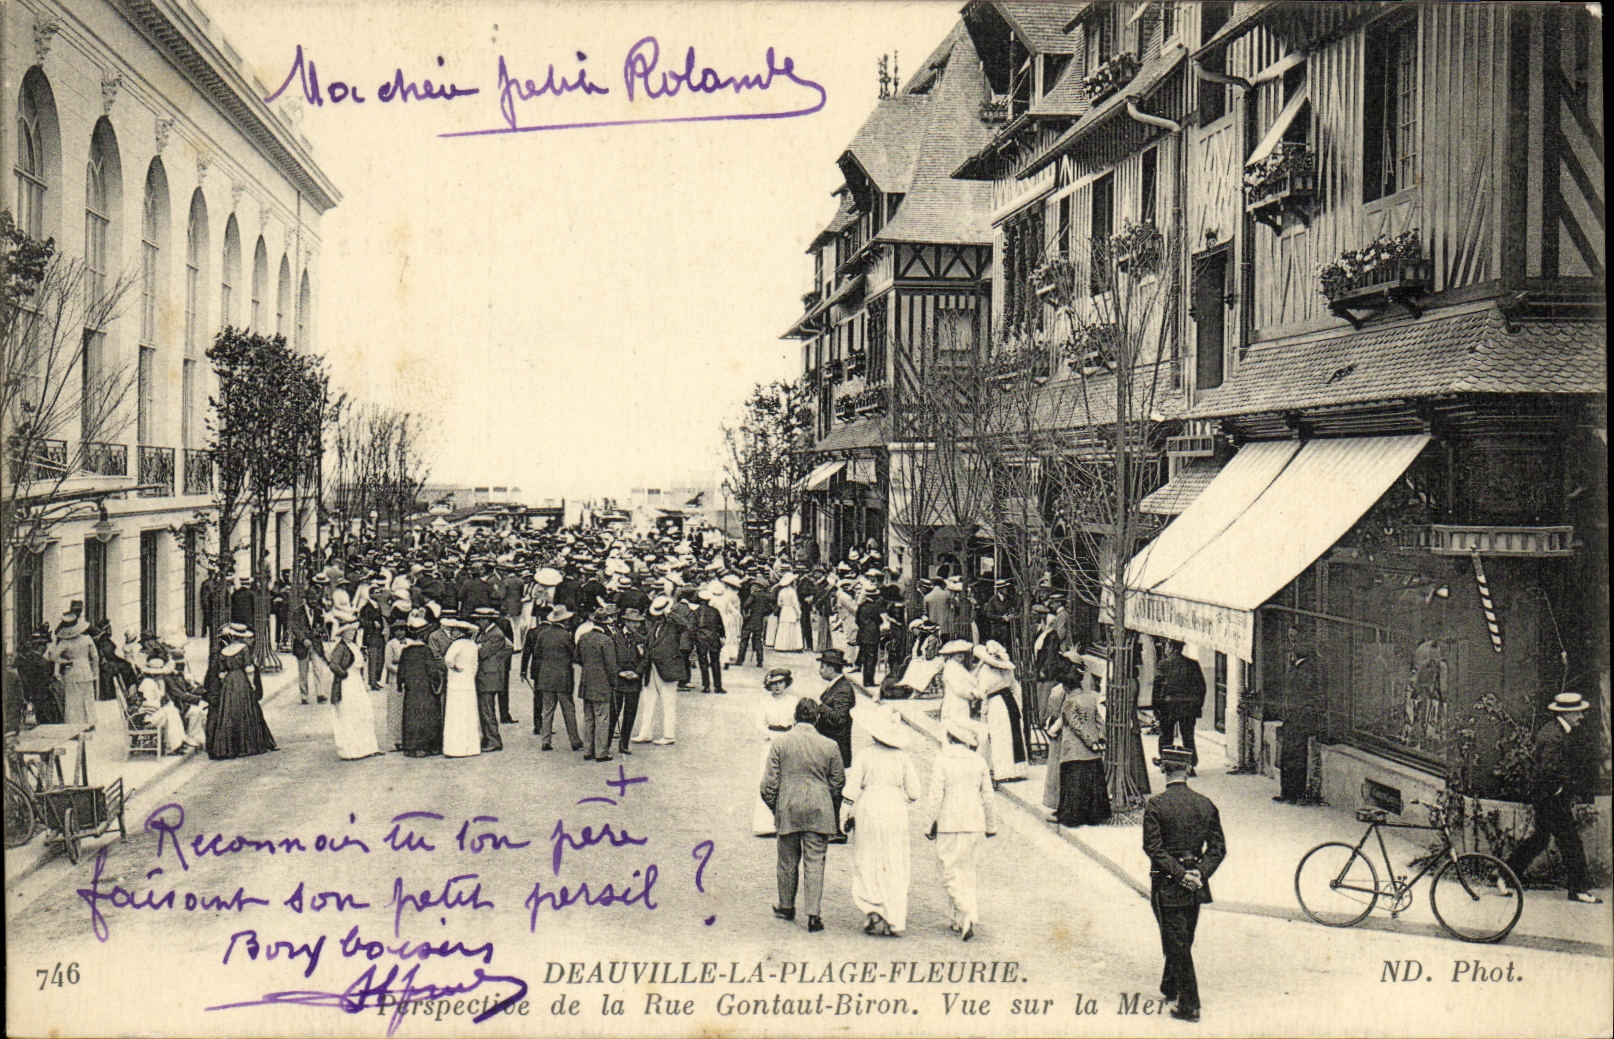 Ma chère petite Rolande
+
Reconnais tu ton père
faisant son petit persil ?
Bons baisers
746
DEAUVILLE-LA-PLAGE-FLEURIE.
ND. Phot.
Perspective de la Rue Gontaut-Biron. Vue sur la Mer